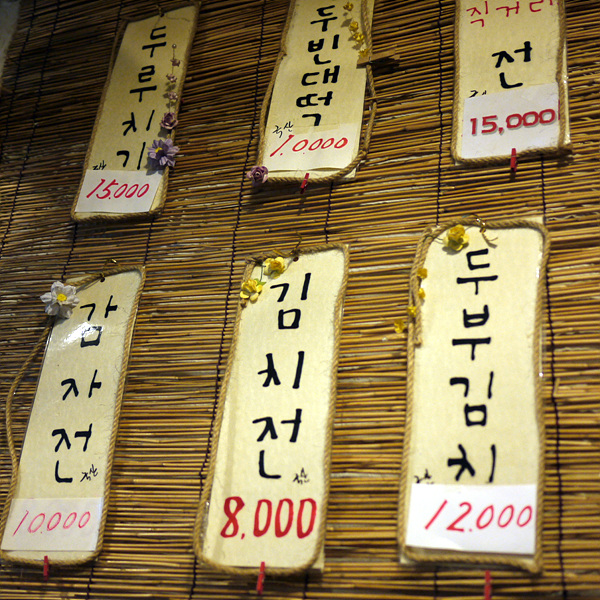 두루치기
15.000
두빈대떡
국산
10.000
직거리
전
15,000
감자전
국산
10.000
김치전
국산
8,000
두부김치
12.000